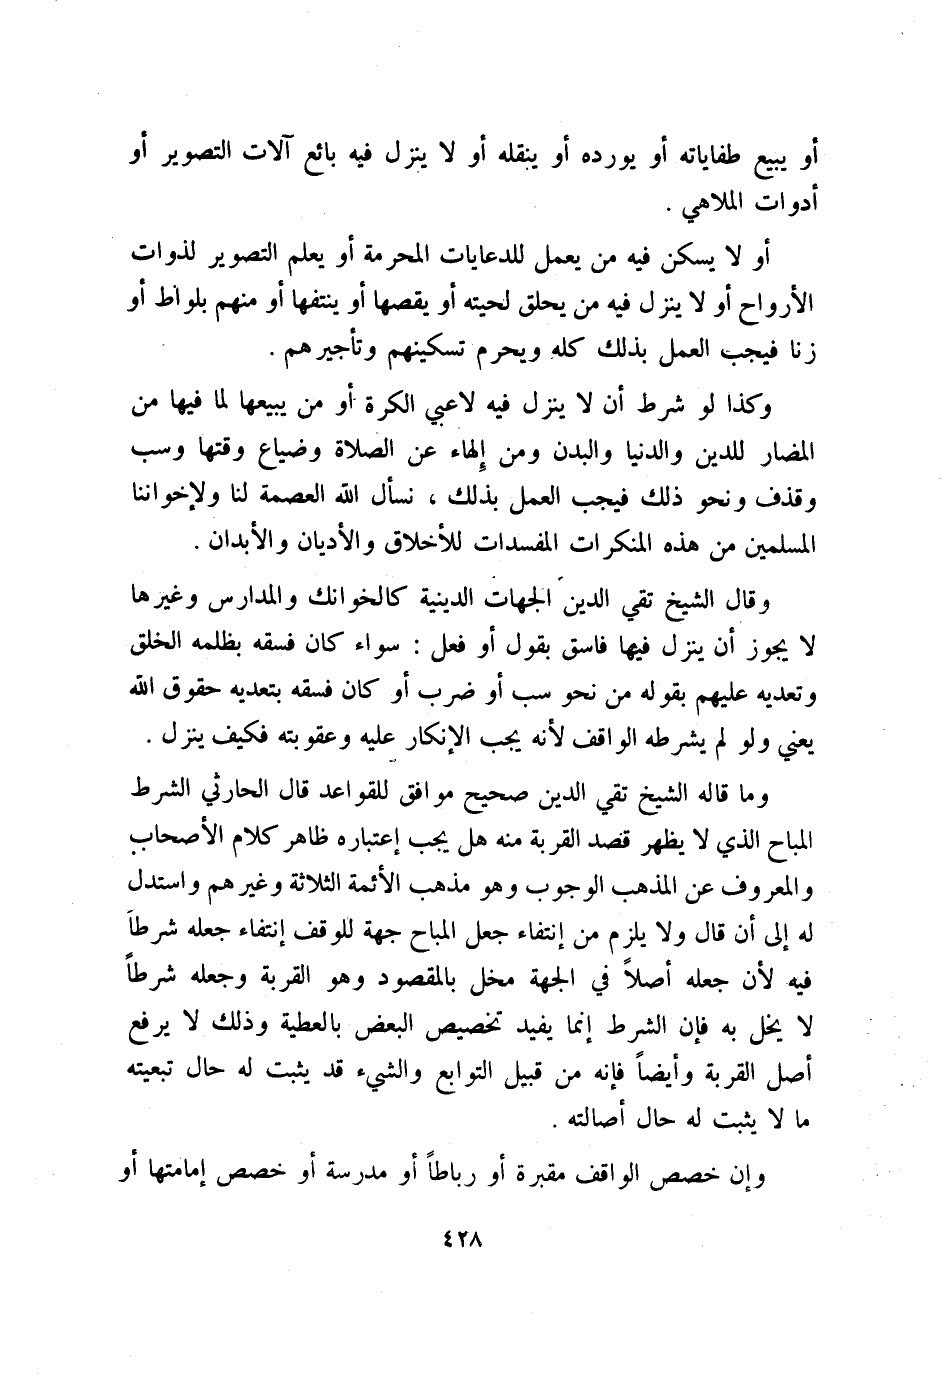 أو يبيع طفاياته أو يورده أو ينقله أو لا ينزل فيه بائع آلات التصوير أو
أدوات الملاهي .
أو لا يسكن فيه من يعمل للدعايات المحرمة أو يعلم التصوير لذوات
الأرواح أو لا ينزل فيه من يحلق لحيته أو يقصها أو ينتفها أو منهم بلواط أو
زنا فيجب العمل بذلك كله ويحرم تسكينهم وتأجيرهم .
وكذا لو شرط أن لا ينزل فيه لاعبي الكرة أو من يبيعها لما فيها من
المضار للدين والدنيا والبدن ومن إلهاء عن الصلاة وضياع وقتها وسب
وقذف ونحو ذلك فيجب العمل بذلك ، نسأل الله العصمة لنا ولإخواننا
المسلمين من هذه المنكرات المفسدات للأخلاق والأديان والأبدان .
وقال الشيخ تقي الدين الجهات الدينية كالخوانك والمدارس وغيرها
لا يجوز أن ينزل فيها فاسق بقول أو فعل : سواء كان فسقه بظلمه الخلق
وتعديه عليهم بقوله من نحو سب أو ضرب أو كان فسقه بتعديه حقوق الله
يعني ولو لم يشرطه الواقف لأنه يجب الإنكار عليه وعقوبته فكيف ينزل .
وما قاله الشيخ تقي الدين صحيح موافق للقواعد قال الحارثي الشرط
المباح الذي لا يظهر قصد القربة منه هل يجب إعتباره ظاهر كلام الأصحاب
والمعروف عن المذهب الوجوب وهو مذهب الأئمة الثلاثة وغيرهم واستدل
له إلى أن قال ولا يلزم من إنتفاء جعل المباح جهة للوقف إنتفاء جعله شرطاً
فيه لأن جعله أصلاً في الجهة مخل بالمقصود وهو القربة وجعله شرطاً
لا يخل به فإن الشرط إنما يفيد تخصيص البعض بالعطية وذلك لا يرفع
أصل القربة وأيضاً فإنه من قبيل التوابع والشيء قد يثبت له حال تبعيته
ما لا يثبت له حال أصالته .
وإن خصص الواقف مقبرة أو رباطاً أو مدرسة أو خصص إمامتها أو
٤٢٨